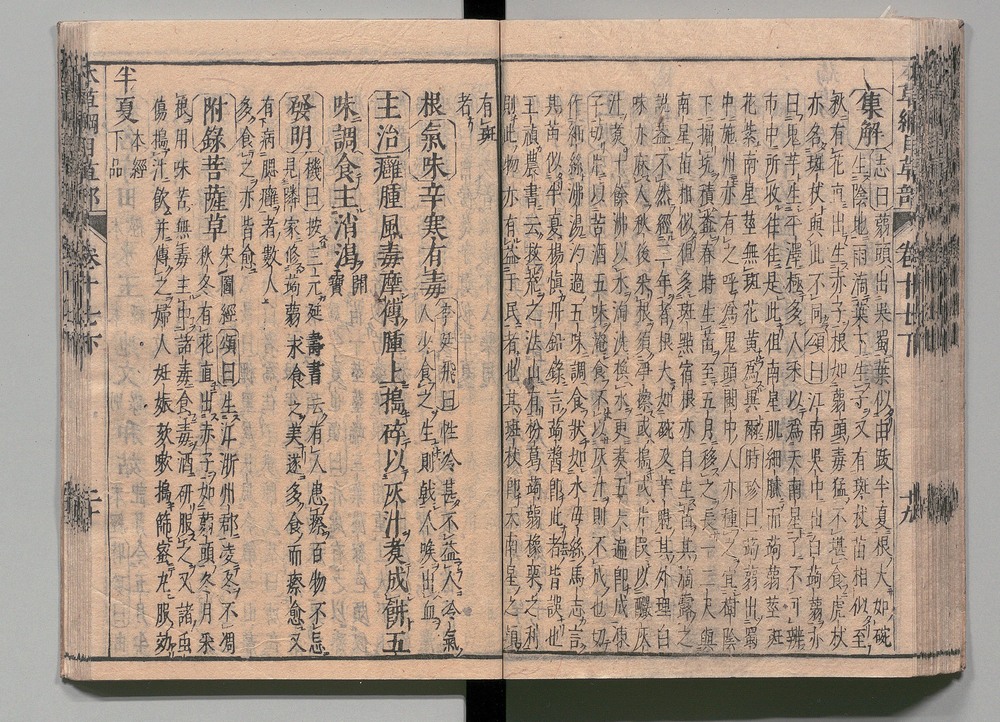 集解 志曰蒻頭出吳蜀葉似由跋半夏根大如碗
生陰地雨滴葉下生子又有斑杖苗相似至
秋有花直出生赤子根如蒻頭毒猛不堪食虎杖
亦名斑杖與此不同頌曰江南吳中出白蒟蒻亦
曰鬼芋生平澤極多人采以為天南星了不可辨
市中所收往往是此但南星肌細膩而蒟蒻莖斑
花紫南星莖無斑花黃為異爾時珍曰蒟蒻出蜀
中施州亦有之呼為鬼頭閩中人亦種之宜樹陰
下掘坑積糞春時生苗至五月移之長一二尺與
南星苗相似但多斑點宿根亦自生苗其滴露之
說蓋不然經二年者根大如碗及芋魁其外理白
味亦麻人秋後采根須淨擦或搗或片段以釅灰
汁煮十餘沸以水淘洗換水更煮五六遍即成凍
子切片以苦酒五味淹食不以灰汁則不成也切
作細絲沸湯汋過五味調食狀如水母絲馬志言
其苗似半夏楊慎丹鉛錄言蒟醬即此者皆誤也
王禎農書云救荒之法山有粉葛蒟蒻橡栗之利
則此物亦有益于民者也其斑杖即天南星之類
有斑者
根氣味辛寒有毒 李廷飛曰性冷甚不益人冷氣
人少食之生則戟人喉出血
主治癰腫風毒摩傅腫上搗碎以灰汁煮成餅五
味調食主消渴 開寶
發明 機曰按三元延壽書云有人患瘵百物不忌
見隣家修蒟蒻求食之美遂多食而瘵愈又
有病腮癰者數人
多食之亦皆愈
附錄菩薩草 宋圖經頌曰生江浙州郡凌冬不凋
秋冬有花直出赤子如蒻頭冬月采
根用味苦無毒主中諸毒食毒酒研服之又諸蟲
傷搗汁飲并傅之婦人妊娠欬嗽搗篩蜜丸服効
半夏 本經下品
本草綱目草部 卷十七下 十九
本草綱目草部 卷十七下 二十